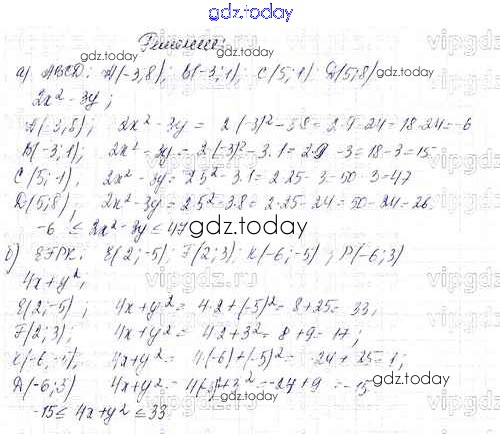 gdz.today
Решение:
а) ABCD: A(-3,8); B(-3;1); C(5;1) D(5;8)
2x² - 3y;
A(-3,8); 2x² - 3y = 2·(-3)² - 3·8 = 2·9 - 24 = 18 - 24 = -6
B(-3;1); 2x² - 3y = 2·(-3)² - 3·1 = 2·9 - 3 = 18 - 3 = 15
C(5;1), 2x² - 3y = 2·5² - 3·1 = 2·25 - 3 = 50 - 3 = 47
D(5;8), 2x² - 3y = 2·5² - 3·8 = 2·25 - 24 = 50 - 24 = 26
-6 ≤ 2x² - 3y ≤ 47
gdz.today
б) EFPK: E(2;-5); F(2;3); K(-6;-5); P(-6;3)
4x + y²;
E(2;-5); 4x + y² = 4·2 + (-5)² = 8 + 25 = 33;
F(2;3); 4x + y² = 4·2 + 3² = 8 + 9 = 17;
K(-6,-5); 4x + y² = 4(-6) + (-5)² = -24 + 25 = 1;
(-6;3) 4x + y² = 3² = -24 + 9 = -15
-15 ≤ 4x + y² ≤ 33
gdz.today
gdz.today